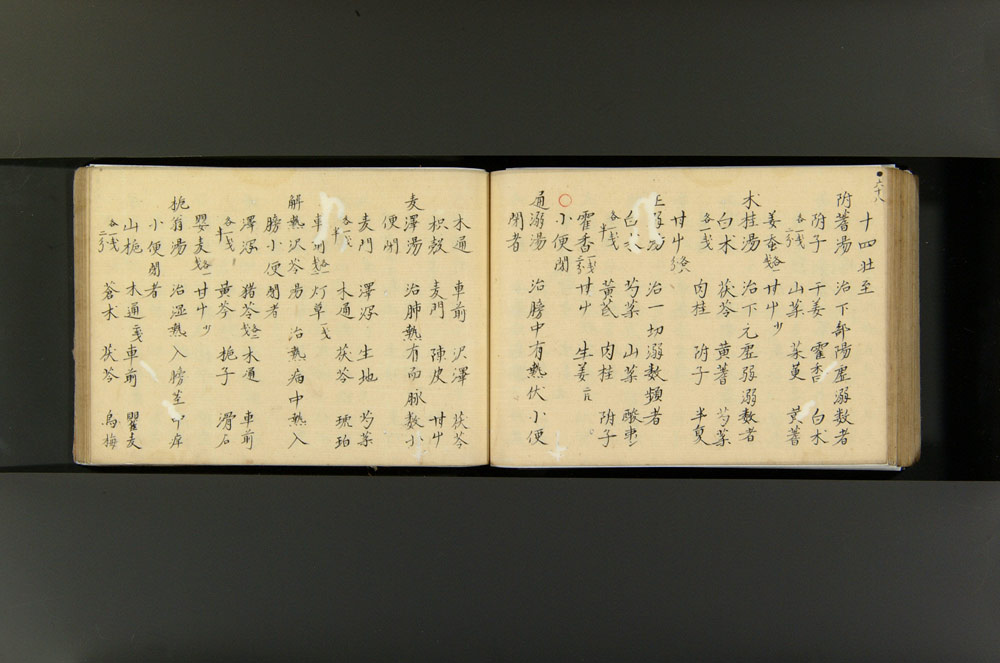 六十八
十四壮至
附蓍湯 治下部陽虚溺数者
附子 干姜 霍香 白术
各一戔二分 山薬 茱萸 黄蓍
姜蚕 甘艸少
术桂湯 治下元虚弱溺数者
白术 茯苓 黄蓍 芍薬
各一戔 肉桂 附子 半夏
甘艸
治一切溺数頻者
白术 芍薬 山薬 酸枣
各一戔半 黄芪 肉桂 附子
霍香 甘艸 生姜
小便閉
通溺湯 治膀中有熱伏小便
閉者
木通 車前 沢澤 茯苓
枳殼 麦門 陳皮 甘艸
麦澤湯 治肺熱有而脉数小
便閉
麦門 澤泻 生地 芍薬
各一戔半 木通 茯苓 琥珀
灯草
解熱沢苓湯 治熱病中熱入
膀小便閉者
澤泻 猪苓 木通 車前
各一戔半 黄芩 梔子 滑石
瞿麦 甘艸少
梔翁湯 治湿熱入膀茎中痒
小便閉者
山梔 木通 車前 瞿麦
各一戔二分 蒼术 茯苓 烏梅